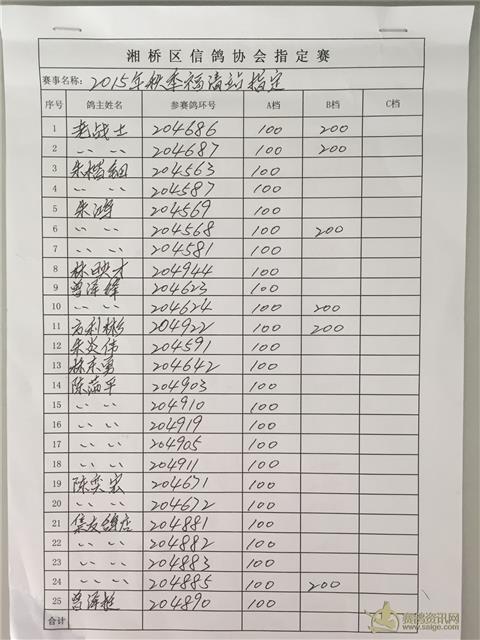 湘桥区信鸽协会指定赛
赛事名称: 2015年秋季福清站指定
序号 鸽主姓名 参赛鸽环号 A档 B档 C档
1 老战士 204686 100 200
2 〃 〃 204687 100 200
3 朱楷绚 204563 100
4 〃 〃 204587 100
5 朱鸿 204569 100
6 〃 〃 204568 100 200
7 〃 〃 204581 100
8 林映才 204944 100
9 曾泽锋 204623 100
10 〃 〃 204624 100 200
11 方利彬 204922 100 200
12 朱炎伟 204591 100
13 林东勇 204642 100
14 陈荫平 204903 100
15 〃 〃 204910 100
16 〃 〃 204919 100
17 〃 〃 204905 100
18 〃 〃 204911 100
19 陈奕宏 204671 100
20 〃 〃 204672 100
21 集友鸽店 204881 100
22 〃 〃 204882 100
23 〃 〃 204883 100
24 〃 〃 204885 100 200
25 曾泽 204890 100
合计
赛鸽资讯网
www.saige.com